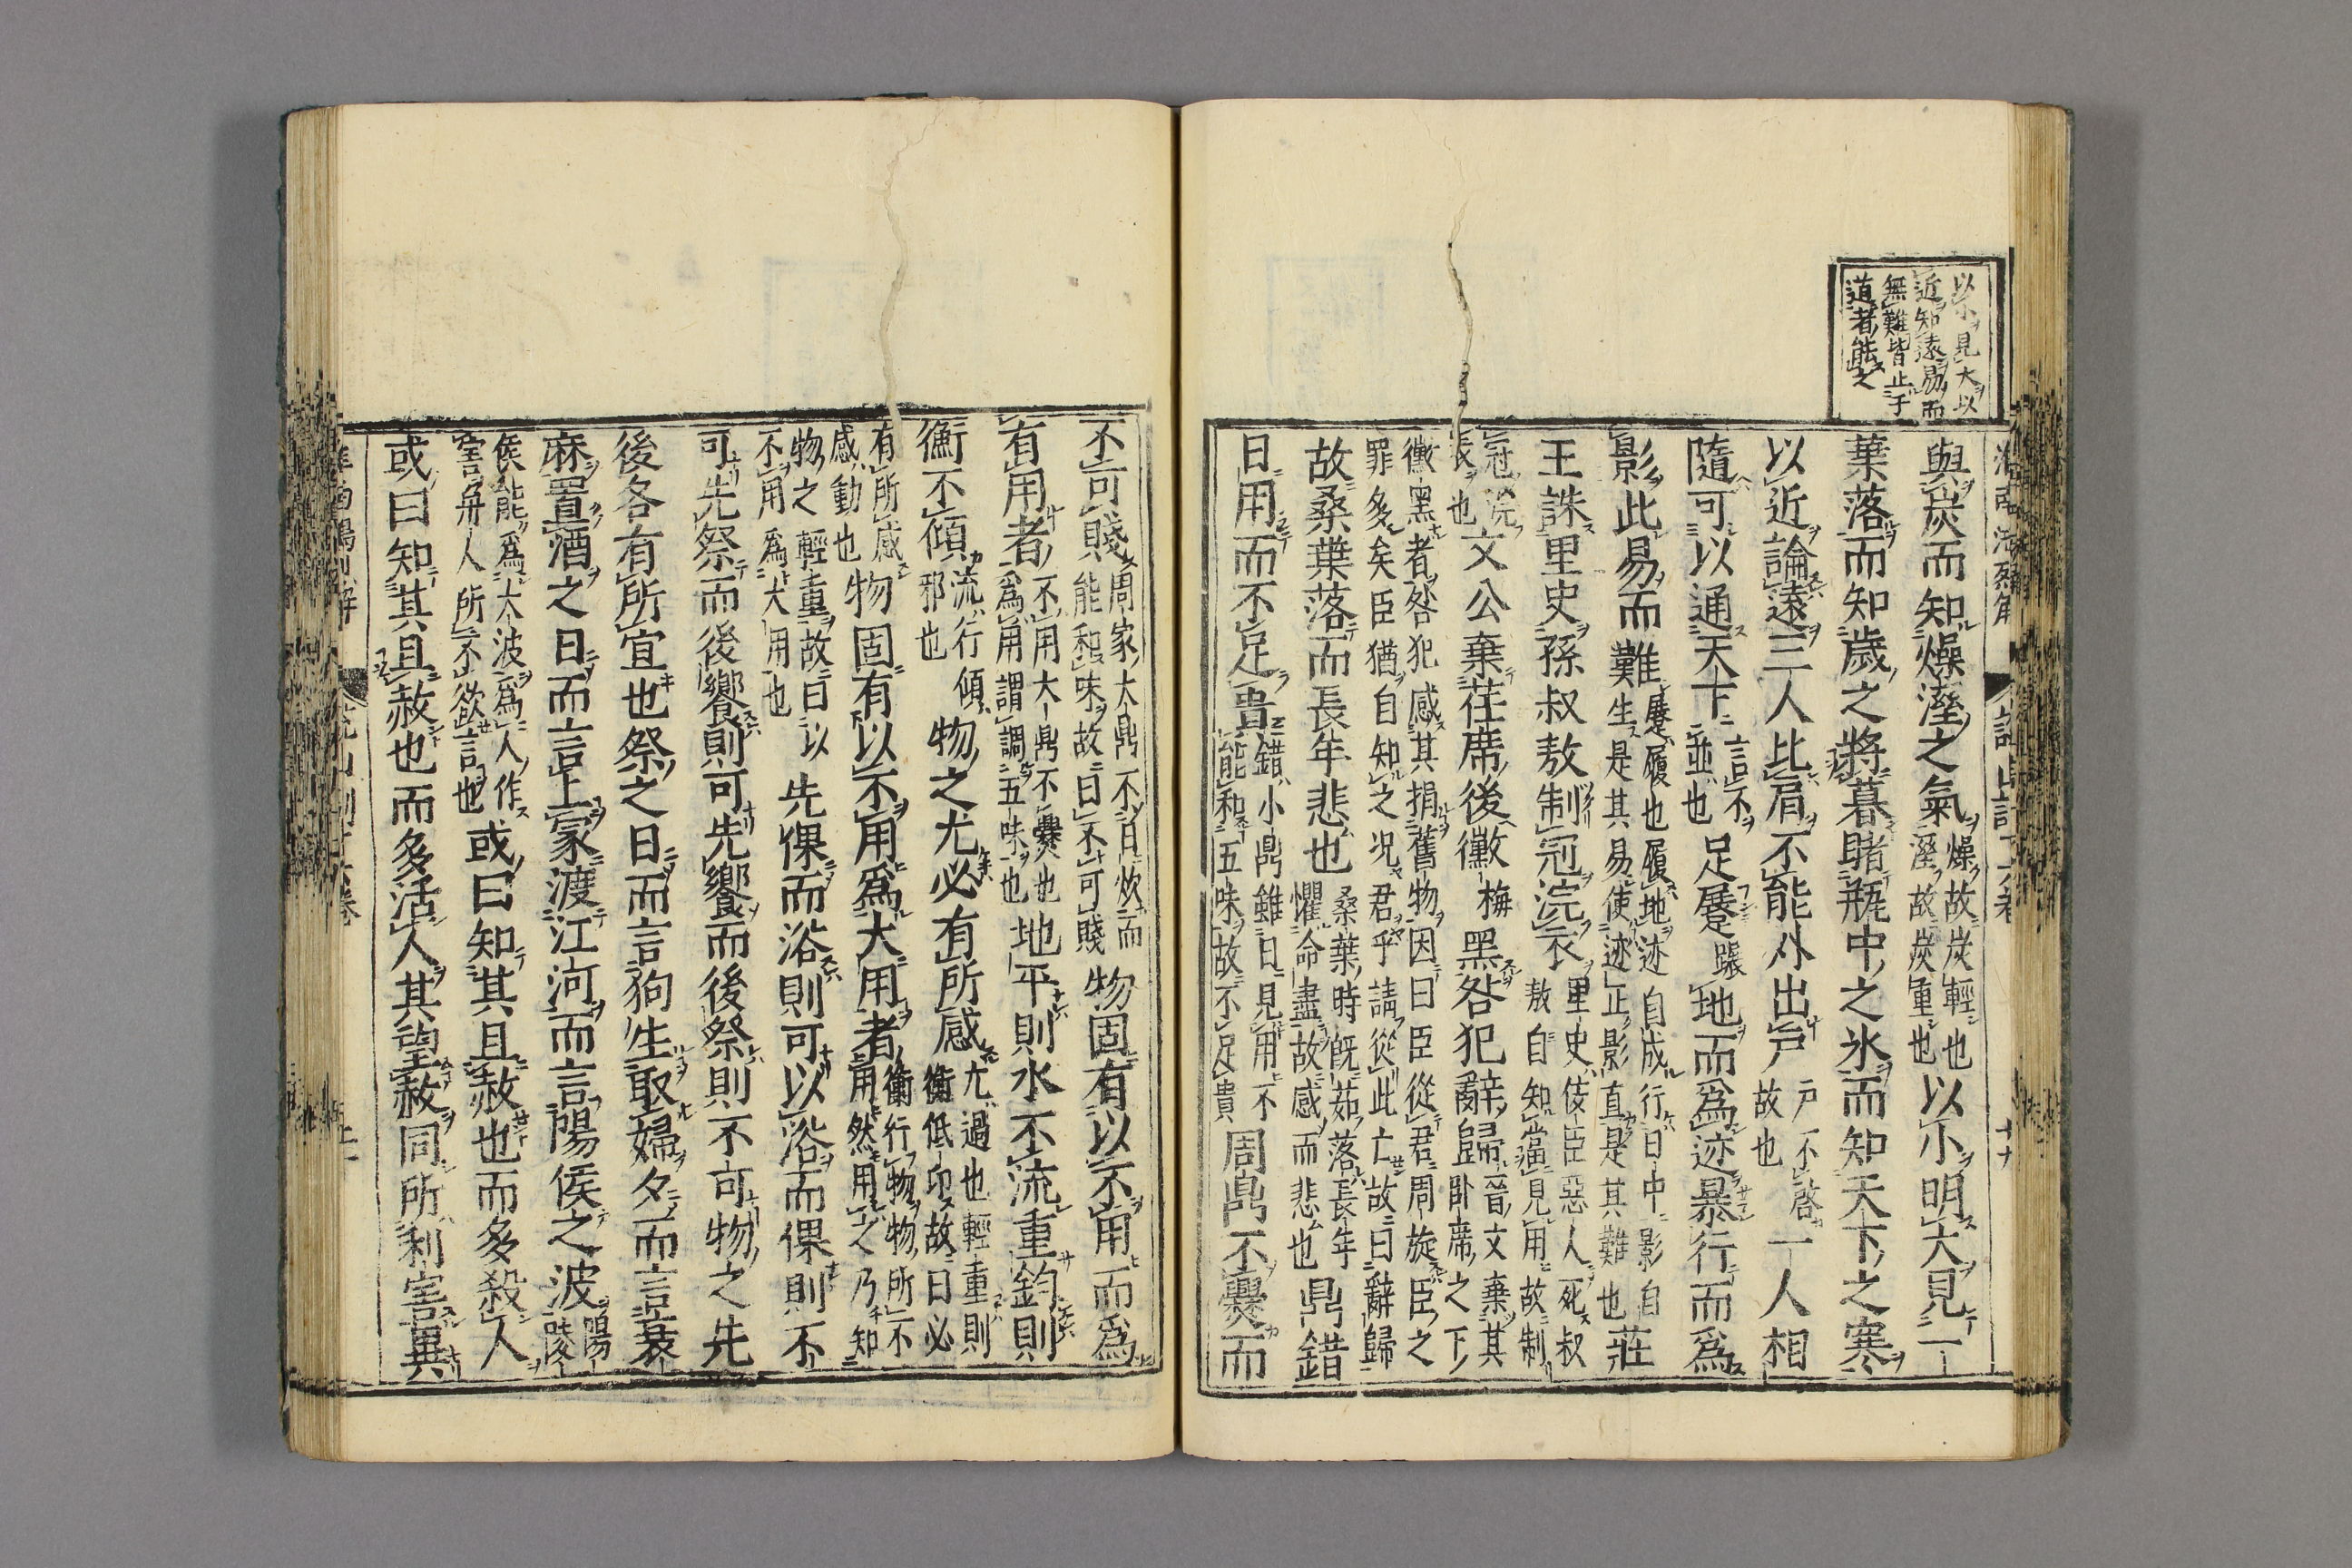 以小見大以
近知遠易而
無難皆止于
道者能之
與炭而知燥溼之氣燥故炭輕也溼故炭重也以小明大見一
葉落而知歲之將暮睹瓶中之氷而知天下之寒
以近論遠三人比肩不能外出戶戶不啓故也一人相
隨可以通天下言不並也足蹍蹍地而爲迹暴行而爲
影此易而難蹍履也履地迹自成行日中影自難生是其易使迹正影直是其難也莊
王誅里史孫叔敖制冠浣衣里史佞臣惡人死叔敖自知當見用故制
冠浣衣也文公棄荏席後黴梅黑咎犯辭歸晉文棄其臥席之下
黴黑者咎犯感其捐舊物因曰臣從君周旋臣之
罪多矣臣猶自知之况君乎請從此亡故曰辭歸
故桑葉落而長年悲也桑葉時旣茹落長年懼命盡故感而悲也鼎錯
日用而不足貴錯小鼎雖日見用不能和五味故不足貴周鼎不爨而
不可賤周家大鼎不日炊而能和味故曰不可賤物固有以不用而爲
有用者不用大鼎不爨也爲用謂調五味也地平則水不流重鈞則
衡不傾流行傾邪也物之尤必有所感尤過也輕重則衡低卬故曰必
有所感感動也物固有以不用爲大用者衡行物物所不用然用之乃知
物之輕重故曰以不用爲大用也先倮而浴則可以浴而倮則不
可先祭而後饗則可先饗而後祭則不可物之先
後各有所宜也祭之日而言狗生取婦夕而言衰
麻置酒之日而言上冢渡江河而言陽侯之波陽陵
侯能爲大波爲人作害舟人所不欲言也或曰知其且赦也而多殺人
或曰知其且赦也而多活人其望赦同所利害異